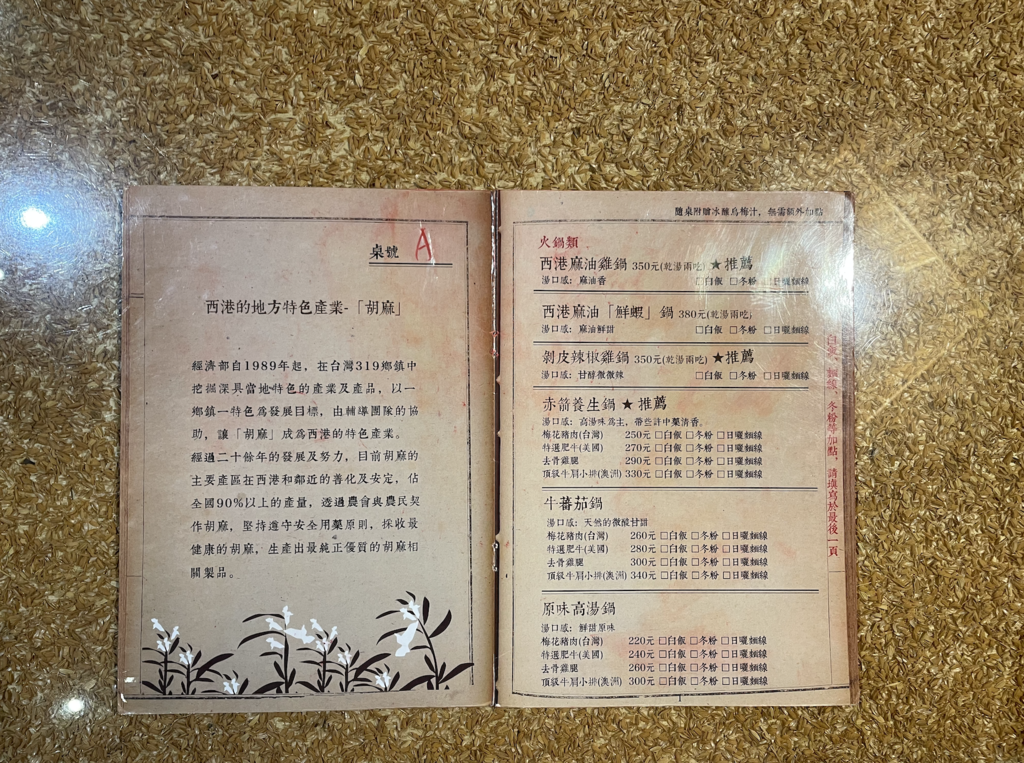 桌號 A
西港的地方特色產業-「胡麻」
經濟部自1989年起，在台灣319鄉鎮中
挖掘深具當地特色的產業及產品，以一
鄉鎮一特色為發展目標，由輔導團隊的協
助，讓「胡麻」成為西港的特色產業。
經過二十餘年的發展及努力，目前胡麻的
主要產區在西港和鄰近的善化及安定，佔
全國90%以上的產量，透過農會與農民契
作胡麻，堅持遵守安全用藥原則，採收最
健康的胡麻，生產出最純正優質的胡麻相
關製品。
隨桌附贈冰釀烏梅汁，無需額外加點
火鍋類
西港麻油雞鍋 350元(乾湯兩吃) ★推薦
湯口感：麻油香 □白飯 □冬粉 □日曬麵線
西港麻油「鮮蝦」鍋 380元(乾湯兩吃)
湯口感：麻油鮮甜 □白飯 □冬粉 □日曬麵線
剝皮辣椒雞鍋 350元(乾湯兩吃) ★推薦
湯口感：甘醇微微辣 □白飯 □冬粉 □日曬麵線
赤箭養生鍋 ★ 推薦
湯口感：高湯味為主，帶些許中藥清香。
梅花豬肉(台灣) 250元 □白飯 □冬粉 □日曬麵線
特選肥牛(美國) 270元 □白飯 □冬粉 □日曬麵線
去骨雞腿 290元 □白飯 □冬粉 □日曬麵線
頂級牛肩小排(澳洲) 330元 □白飯 □冬粉 □日曬麵線
牛蕃茄鍋
湯口感：天然的微酸甘甜
梅花豬肉(台灣) 260元 □白飯 □冬粉 □日曬麵線
特選肥牛(美國) 280元 □白飯 □冬粉 □日曬麵線
去骨雞腿 300元 □白飯 □冬粉 □日曬麵線
頂級牛肩小排(澳洲) 340元 □白飯 □冬粉 □日曬麵線
原味高湯鍋
湯口感：鮮甜原味
梅花豬肉(台灣) 220元 □白飯 □冬粉 □日曬麵線
特選肥牛(美國) 240元 □白飯 □冬粉 □日曬麵線
去骨雞腿 260元 □白飯 □冬粉 □日曬麵線
頂級牛肩小排(澳洲) 300元 □白飯 □冬粉 □日曬麵線
白飯、麵線、冬粉等加點，請填寫於最後一頁